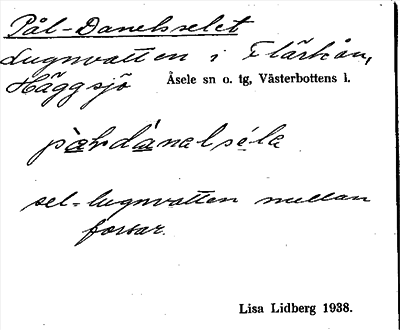 Pål-Danelsselet
Lugnvatten i Flärkån,
Häggsjö Åsele sn o. tg, Västerbottens l.
sel = lugnvatten mellan
forsar.
Lisa Lidberg 1938.